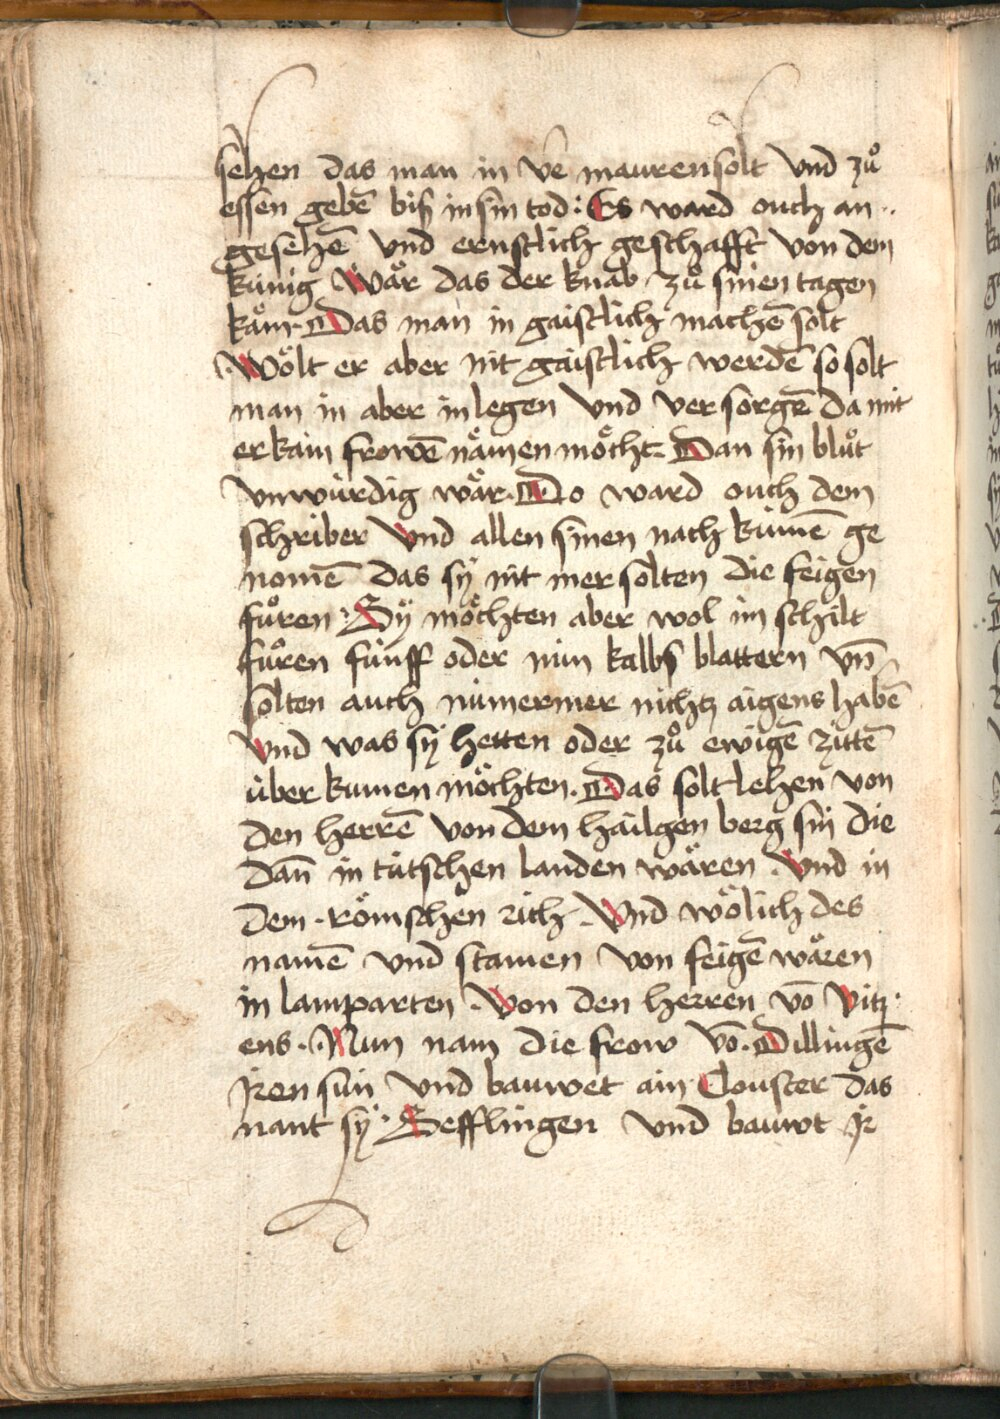 sehen das man in v̄e mauren solt vnd zuͦ
essen gebē bisz in sin tod : Es ward ouch an
gesehē vnd ernstlich geschafft von dem
künig Wår das der knab zuͦ sinen tagen
kåm · Das man in gaistlich machē solt
Wölt er aber nit gaistlich werdē so solt
man in aber in legen vnd ver sorgē da mit
er kain frowē nåmen möcht · Dan sin bluͦt
vnwürdig wår · Do ward ouch dem
schriber vnd allen sinen nach kumē ge
nomē das sÿ nit mer solten die feigen
fuͤren : Sÿ möchten aber wol im schilt
fuͤren fünff oder nün kalbs blattern vn̄
solten auch nümermer nichtz aigens habē
vnd was sÿ hetten oder zuͦ ewigē zittē
über kumen möchten · Das solt lehen von
den herrē von dem hailgen berg sin die
dan̄ in tütschen landen wåren · vnd in
dem · römschen rich · Vnd wölich des
namē vnd stamen von feigē wåren
in lamparten · Von den herren vō Vitz
ens · Nun nam die frow vō · Dillingē
Iren sun vnd bauwet ain Closter das
nant sÿ · Sefflingen vnd bauwt Ir